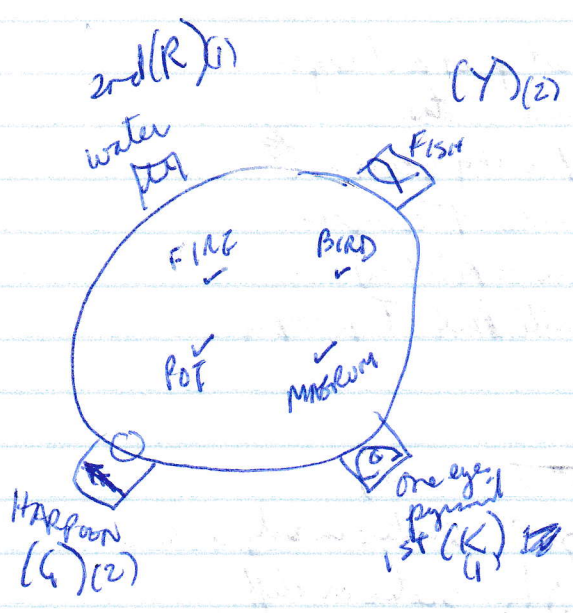 2nd (R) (1)
(Y) (2)
water
FISH
FIRE
BIRD
POT
HARPOON
(G) (2)
one eye
pyramid
1st (K)
(1)